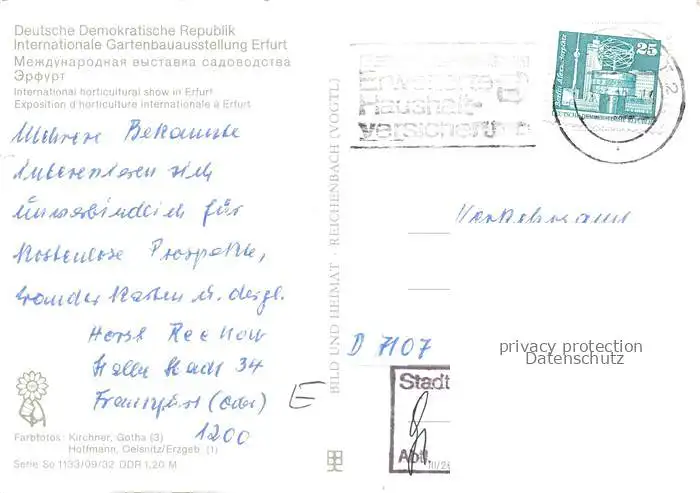 Deutsche Demokratische Republik
Internationale Gartenbauausstellung Erfurt
Международная выставка садоводства
Эрфурт
International horticultural show in Erfurt
Exposition d'horticulture internationale à Erfurt
Mehrere Bekannte
interessieren sich
unverbindlich für
kostenlose Prospekte,
Wanderkarten u. dergl.
Horst
Halbe Stadt 34
Frankfurt (Oder)
1200
E
Farbfotos: Kirchner, Gotha (3)
Hoffmann, Oelsnitz/Erzgeb. (1)
Serie So 1133/09/32 DDR 1,20 M
BILD UND HEIMAT · REICHENBACH (VOGTL)
Erweiterte
Haushalt-
versicherung
25
Verkehrsamt
D 7107
privacy protection
Datenschutz
Stadt
Abt.
III/26